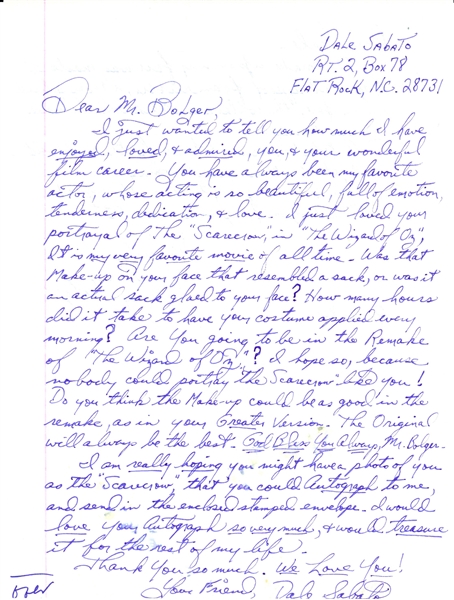 Dale Sabato
RT. 2, Box 78
Flat Rock, N.C. 28731
Dear Mr. Bolger,
I just wanted to tell you how much I have
enjoyed, loved, & admired, you, & your wonderful
film career. You have always been my favorite
actor, whose acting is so beautiful, full of emotion,
tenderness, dedication, & love. I just loved your
portrayal of The "Scarecrow", in "The Wizard of Oz",
It is my very favorite movie of all time. Was that
Make-up on your face that resembled a sack, or was it
an actual sack glued to your face? How many hours
did it take to have your costume applied every
morning? Are You going to be in the Remake
of "The Wizard of Oz"? I hope so, because
nobody could portray the "Scarecrow" like you!
Do you think the Make-up could be as good in the
remake, as in your Greater Version. The Original
will always be the best. God Bless You Always, Mr. Bolger.
I am really hoping you might have a photo of you
as the "Scarecrow", that you could Autograph to me,
and send in the enclosed stamped envelope. I would
love your Autograph so very much, & would treasure
it for the rest of my life.
Thank You so much. We Love You!
Your Friend, Dale Sabato
over